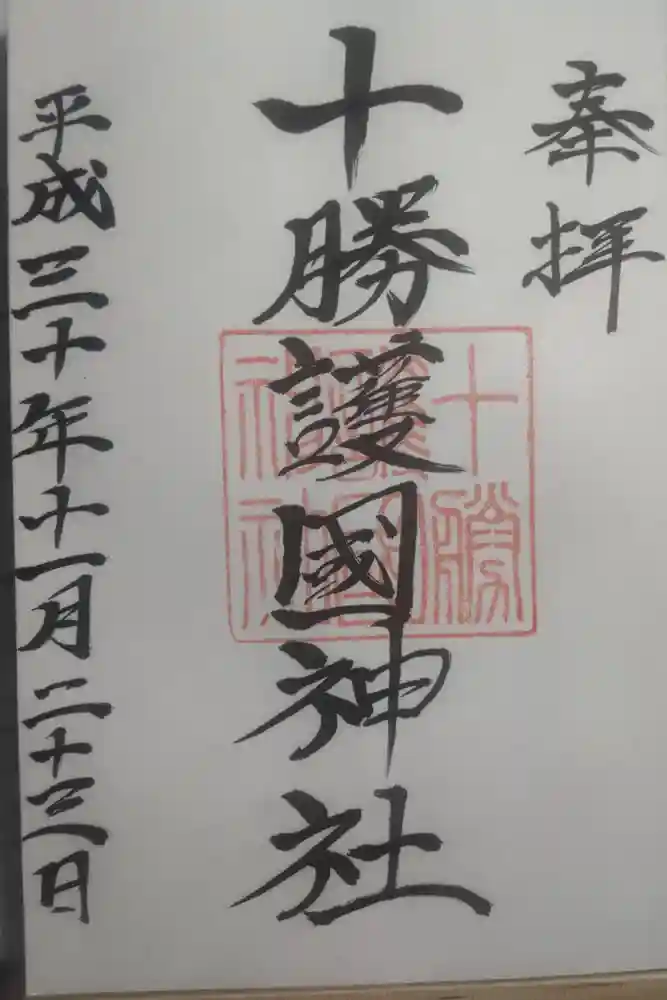 奉拝
十勝護國神社
十勝
護國
神社
平成三十年十一月二十三日